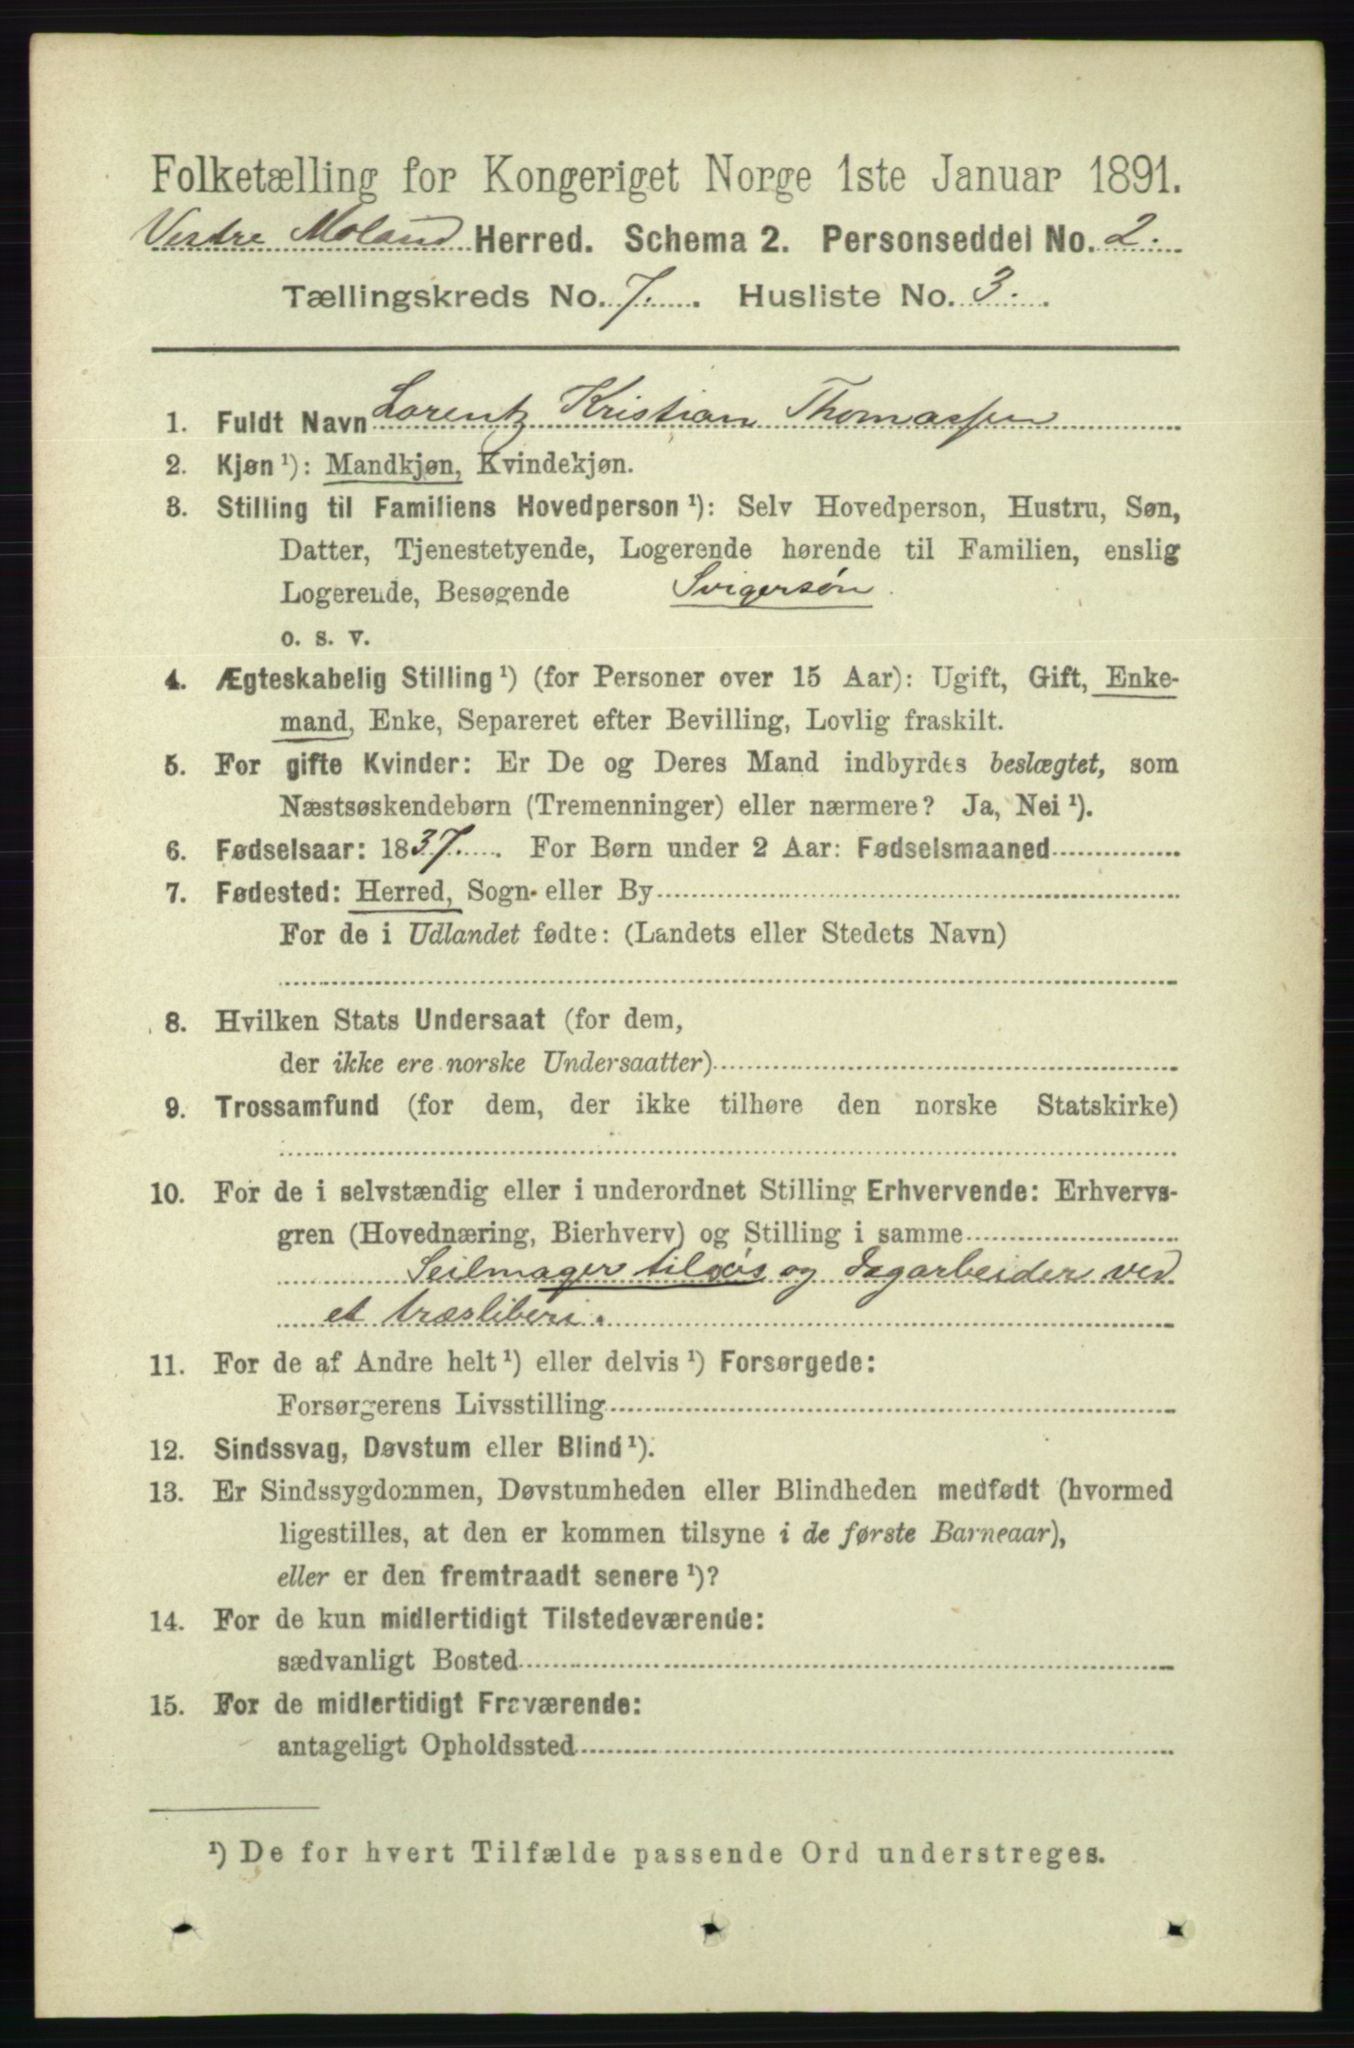 Folketælling for Kongeriget Norge 1ste Januar 1891.
Vestre Moland Herred. Schema 2. Personseddel No. 2.
Tællingskreds No. 7. Husliste No. 3.
1. Fuldt Navn Lorentz Kristian Thomassen
2. Kjøn ¹): Mandkjøn, Kvindekjøn.
3. Stilling til Familiens Hovedperson ¹): Selv Hovedperson, Hustru, Søn,
Datter, Tjenestetyende, Logerende hørende til Familien, enslig
Logerende, Besøgende Svigersøn
o. s. v.
4. Ægteskabelig Stilling ¹) (for Personer over 15 Aar): Ugift, Gift, Enke-
mand, Enke, Separeret efter Bevilling, Lovlig fraskilt.
5. For gifte Kvinder: Er De og Deres Mand indbyrdes beslægtet, som
Næstsøskendebørn (Tremenninger) eller nærmere? Ja, Nei ¹).
6. Fødselsaar: 1837. For Børn under 2 Aar: Fødselsmaaned
7. Fødested: Herred, Sogn eller By
For de i Udlandet fødte: (Landets eller Stedets Navn)
8. Hvilken Stats Undersaat (for dem,
der ikke ere norske Undersaatter)
9. Trossamfund (for dem, der ikke tilhøre den norske Statskirke)
10. For de i selvstændig eller i underordnet Stilling Erhvervende: Erhvervs-
gren (Hovednæring, Bierhverv) og Stilling i samme
Seilmager tilsøs og dagarbeider ved
et træsliberi.
11. For de af Andre helt ¹) eller delvis ¹) Forsørgede:
Forsørgerens Livsstilling
12. Sindssvag, Døvstum eller Blind ¹).
13. Er Sindssygdommen, Døvstumheden eller Blindheden medfødt (hvormed
ligestilles, at den er kommen tilsyne i de første Barneaar),
eller er den fremtraadt senere ¹)?
14. For de kun midlertidigt Tilstedeværende:
sædvanligt Bosted
15. For de midlertidigt Fraværende:
antageligt Opholdssted
¹) De for hvert Tilfælde passende Ord understreges.